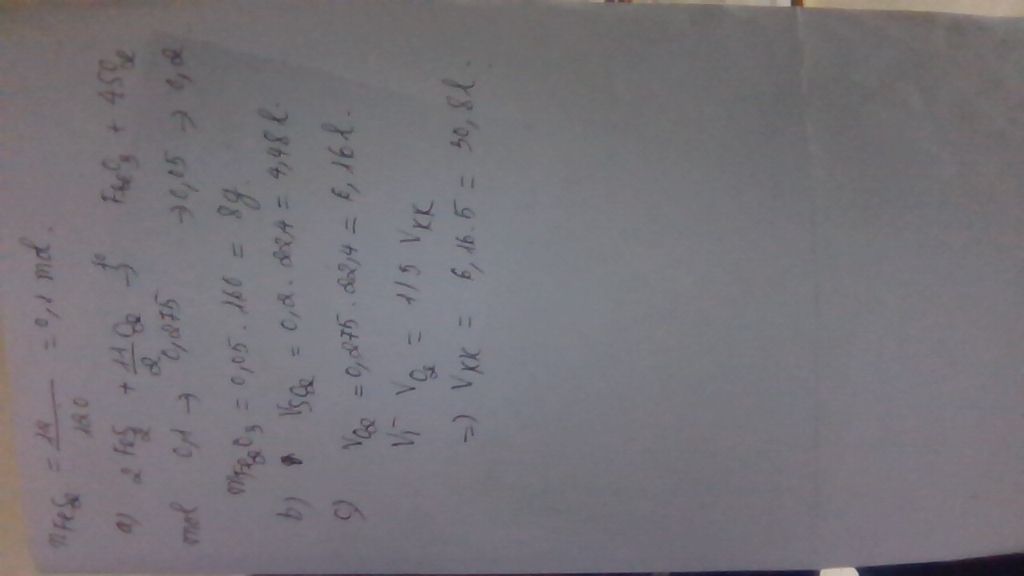 nFeS2 = 12/120 = 0,1 mol.
a) 2 FeS2 + 11/2 O2 →t° Fe2O3 + 4SO2
mol 0,1 → 0,275 → 0,05 → 0,2
mFe2O3 = 0,05 . 160 = 8g
b) VSO2 = 0,2 . 22,4 = 4,48 l.
c) VO2 = 0,275 . 22,4 = 6,16 l.
Vì VO2 = 1/5 VKK
=) VKK = 6,16 . 5 = 30,8 l.